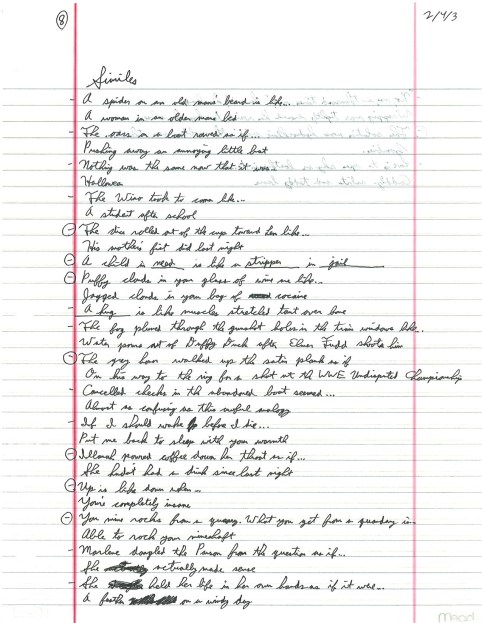 8
2/4/3
Similes
- A spider on an old man's beard is like...
A woman in an older man's bed
- The oars on a boat rowed as if...
Pushing away an annoying little boat
- Nothing was the same now that it was
Halloween
- The Wino took to coma like...
A student after school
- The dice rolled out of the cup toward her like...
His mother's fist did last night
- A child in need is like a stripper in jail
- Puffy clouds in your glass of wine are like...
Jagged clouds in your bag of cocaine
- A hug is like muscles stretched taut over bone
- The fog plumed through the gunshot holes in the train windows like...
Water pours out of Daffy Duck after Elmer Fudd shoots him
- The grey hair walked up the satin plank as if
On his way to the ring for a shot at the WWE Undisputed Championship
- Cancelled checks in the abandoned boat seemed...
Almost as confusing as this awful analogy
- If I should wake before I die...
Put me back to sleep with your warmth
- Illanah poured coffee down her throat as if...
She hadn't had a drink since last night
- Up is like down when...
You're completely insane
- You mine rocks from a quarry. What you get from a quanday is
Able to rock your mineshaft
- Marlene dangled the Person from the question as if...
She actually made sense
- She held her life in her own hands as if it were...
A feather on a windy day
Mead